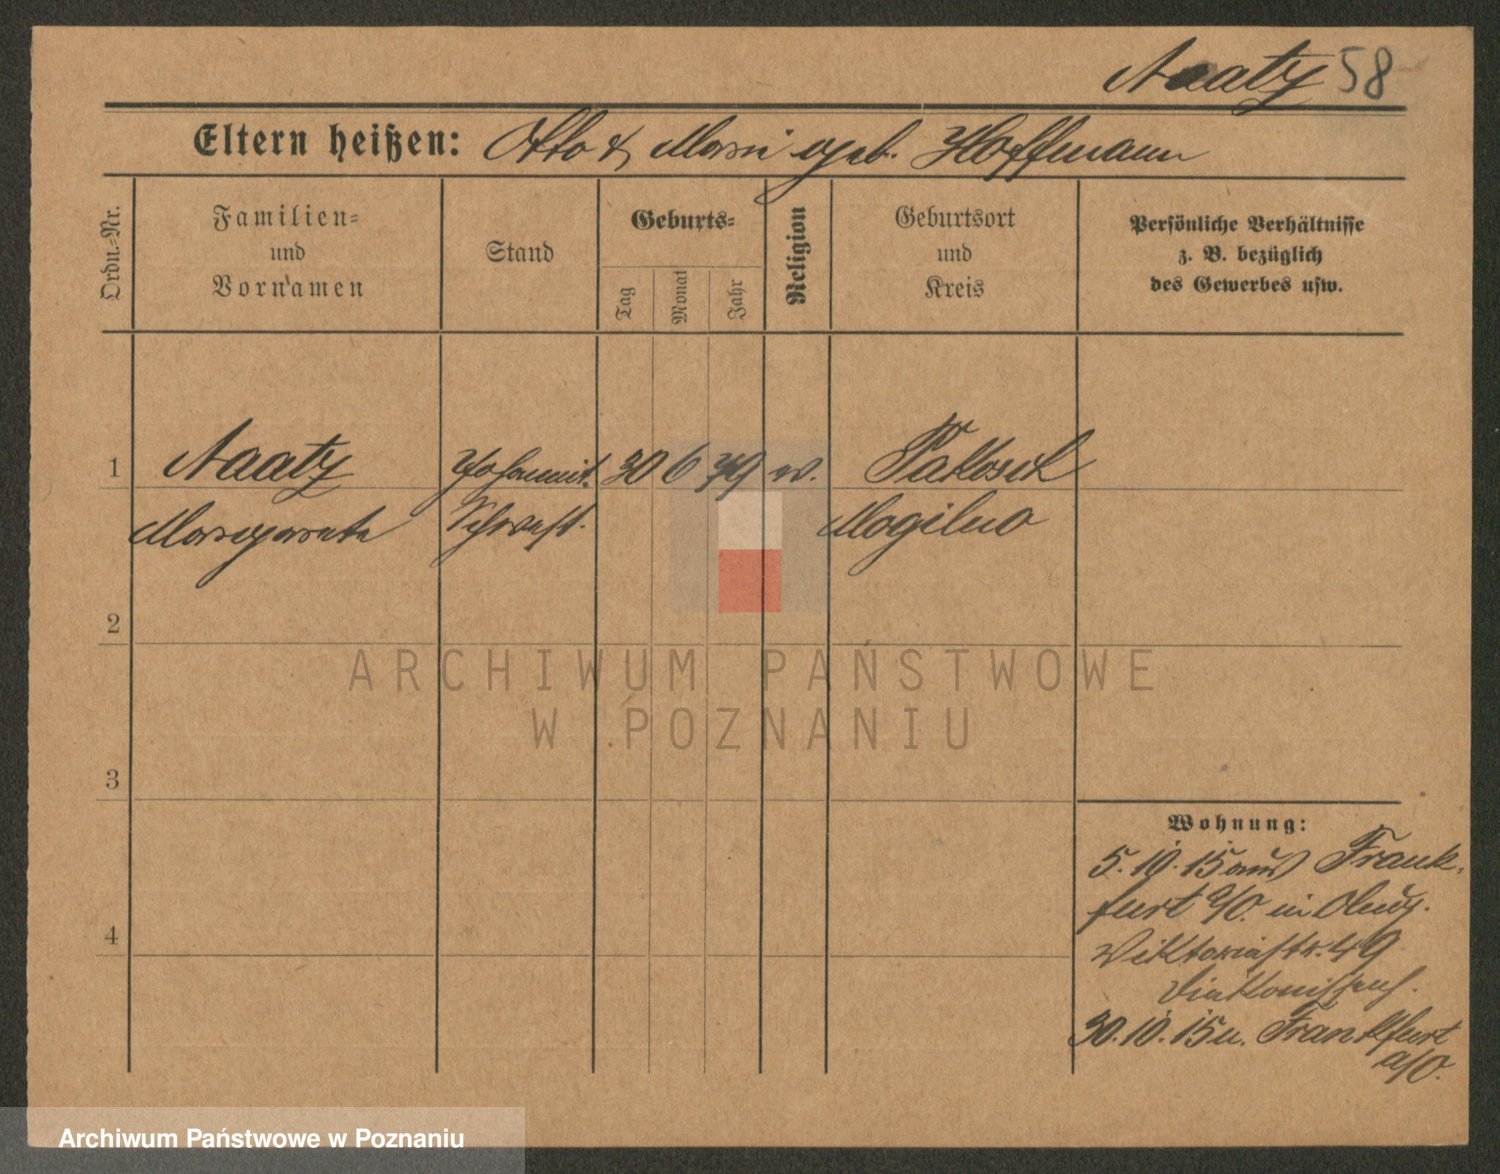 Naatz 58
Eltern heißen: Otto & Marie geb. Hoffmann
Ordn.-Nr.
Familien-
und
Vornamen
Stand
Geburts-
Tag
Monat
Jahr
Religion
Geburtsort
und
Kreis
Persönliche Verhältnisse
z. B. bezüglich
des Gewerbes usw.
1
Naatz
Margarete
Johannit.
Schwest.
30
6
79
ev.
Pakosch
Mogilno
2
3
4
Wohnung:
5.10.15 aus Frank-
furt a/O. in
Viktoriastr. 49
Diakonissenh.
30.10.15 n. Frankfurt
a/O.
ARCHIWUM PAŃSTWOWE
W POZNANIU
Archiwum Państwowe w Poznaniu